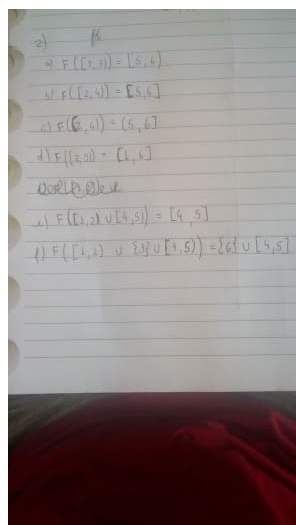 2)
a) F([2,3)) = [5,6)
b) F([2,4)) = [5,6]
c) F((2,4)) = (5,6]
d) F((2,3)) = [2,6]
e) F([1,2) ∪ [4,5)) = [4,5]
f) F([1,2) ∪ {3} ∪ [4,5)) = {6} ∪ [4,5]